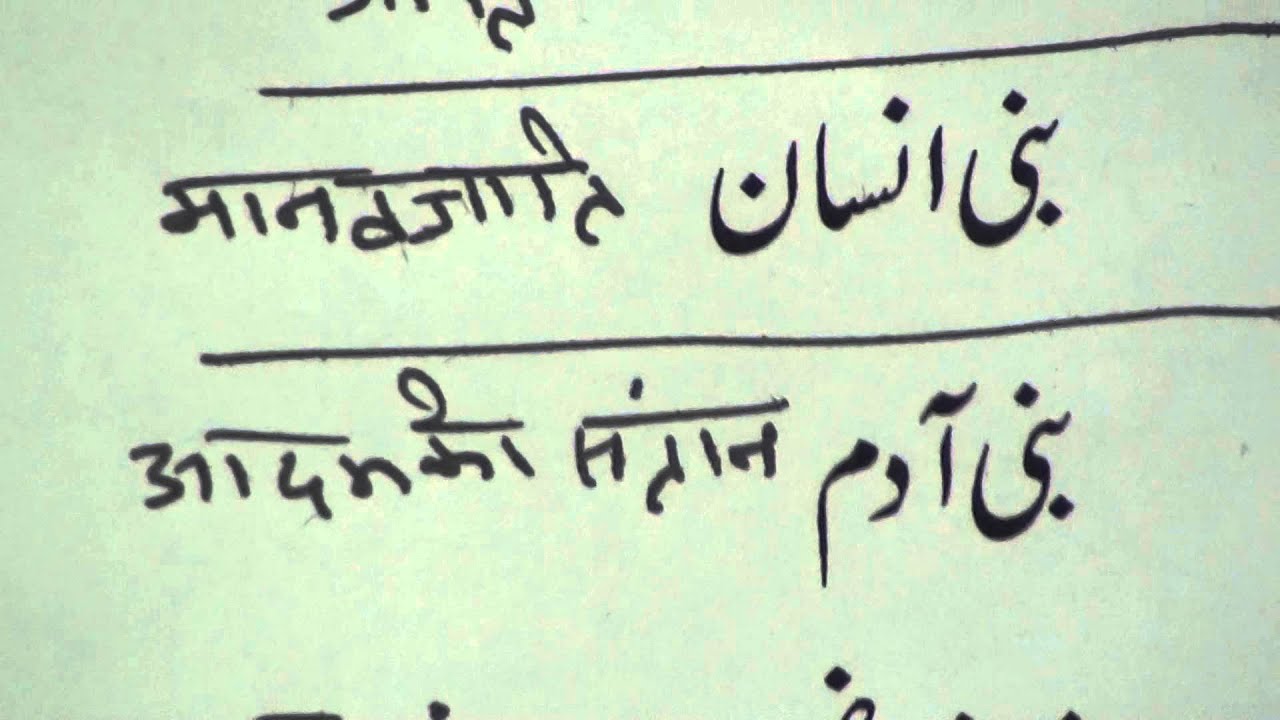 मानवजाति بنی انسان
आदमकी संतान بنی آدم